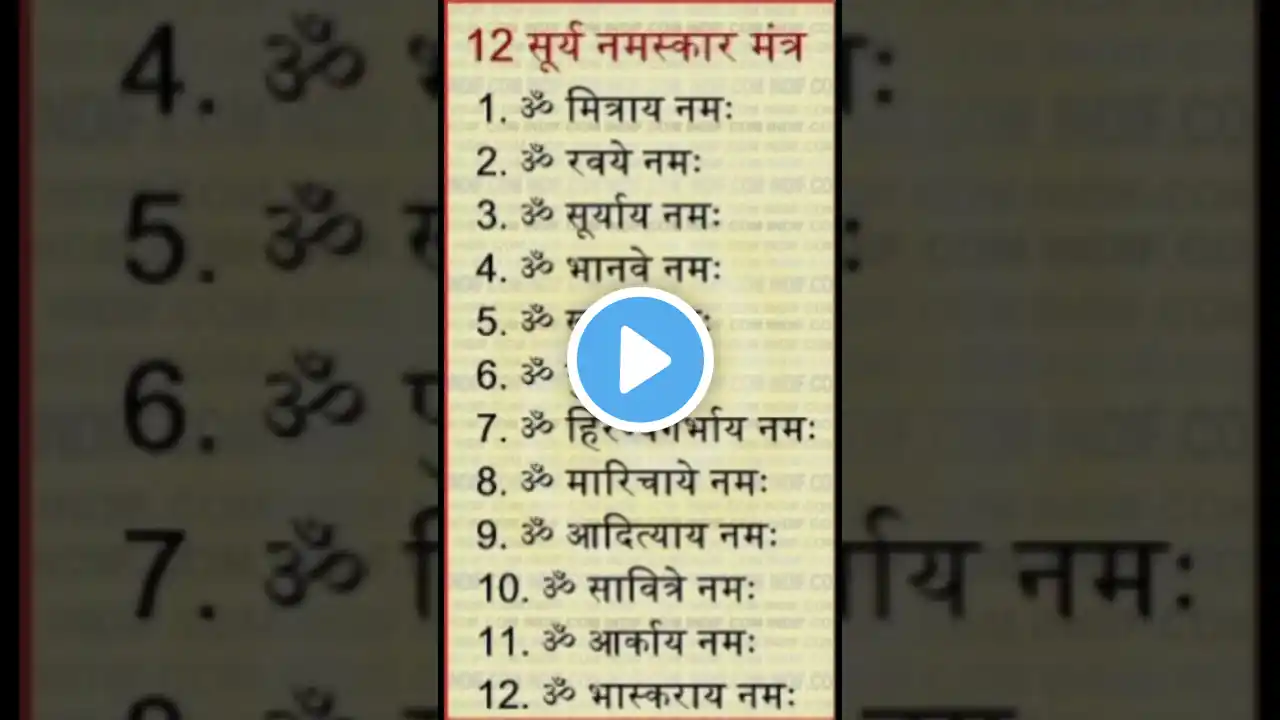 12 सूर्य नमस्कार मंत्र
1. ॐ मित्राय नमः
2. ॐ रवये नमः
3. ॐ सूर्याय नमः
4. ॐ भानवे नमः
5. ॐ
6. ॐ
7. ॐ नमः
8. ॐ मारिचाये नमः
9. ॐ आदित्याय नमः
10. ॐ सावित्रे नमः
11. ॐ आर्काय नमः
12. ॐ भास्कराय नमः